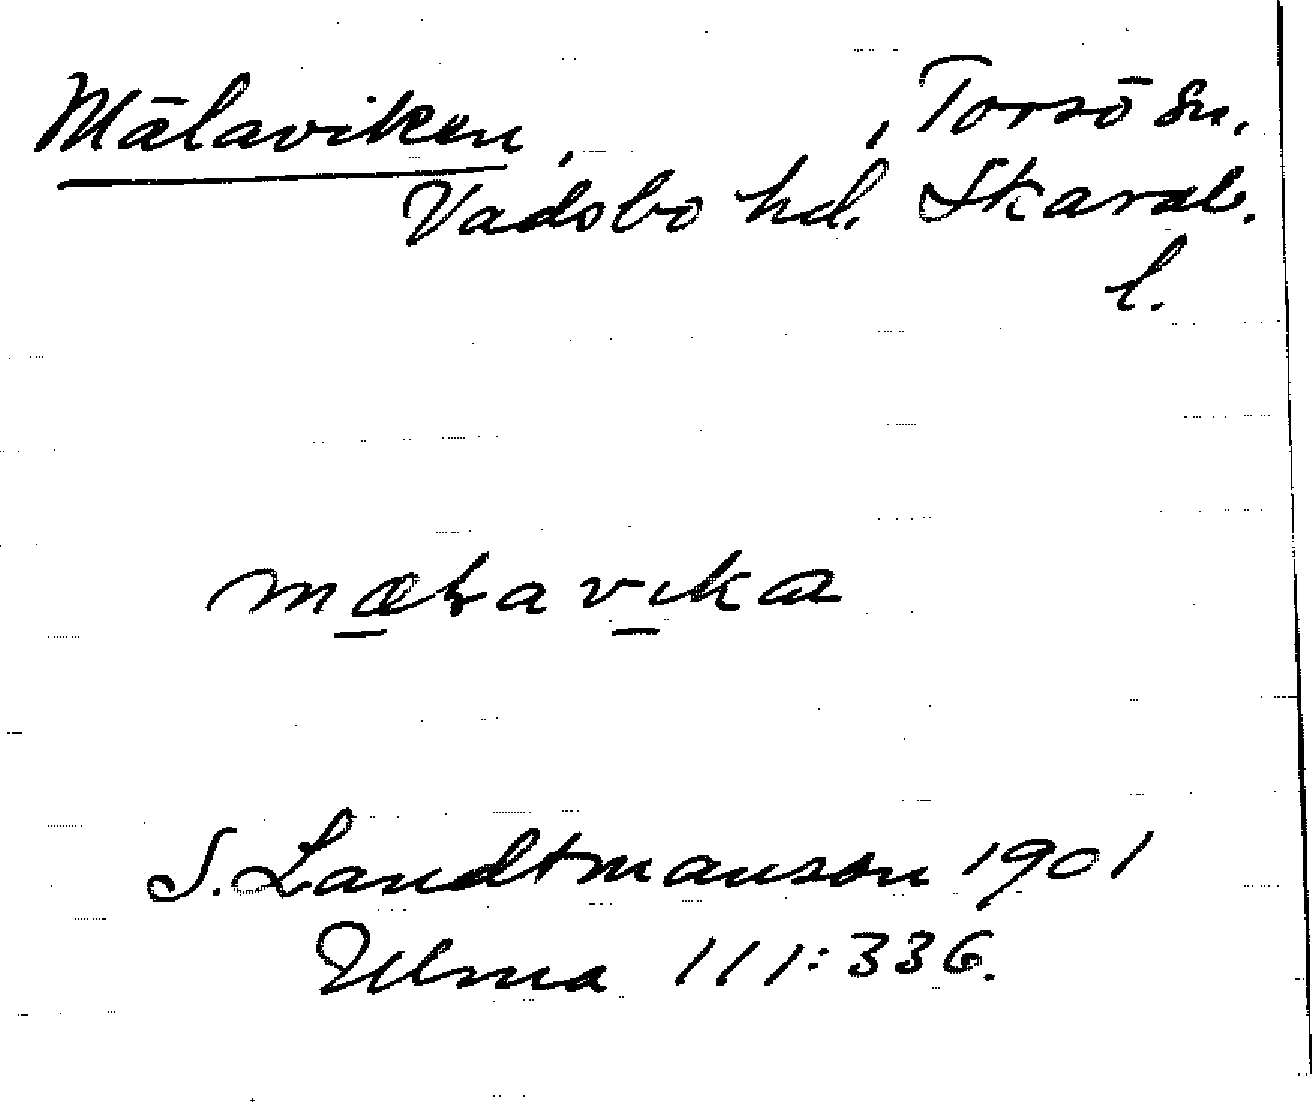 Mälaviken, , Torsö sn,
Vadsbo hd. Skarab.
l.
mæɫavika
S. Landtmanson 1901
Ulma 111:336.